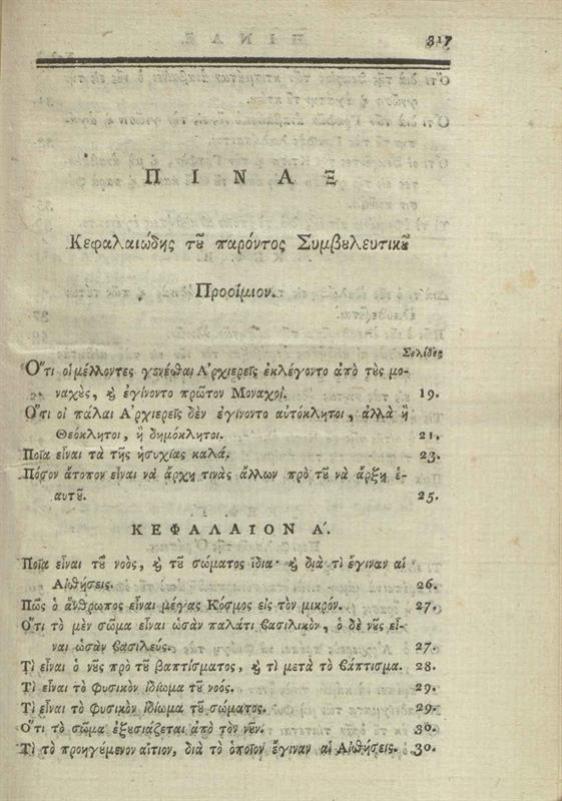 317
ΠΙΝΑΞ
Κεφαλαιώδης τȣ͂ παρόντος Συμβȣλευτικȣ͂
Προοίμιον.
Σελίδες
Ὅτι οἱ μέλλοντες γενέσθαι Ἀρχιερεῖς ἐκλέγοντο ἀπὸ τὰς μο-
ναχὰς, ϗ ἐγίνοντο πρῶτον Μοναχοί. 19.
Ὅτι οἱ πάλαι Ἀρχιερεῖς δὲν ἐγίνοντο αὐτόκλητοι, ἀλλὰ ἢ
Θεόκλητοι, ἢ δημόκλητοι. 21.
Ποῖα εἶναι τὰ τῆς ἡσυχίας καλά. 23.
Πόσον ἄτοπον εἶναι νὰ ἄρχῃ τινὰς ἄλλων πρὸ τȣ͂ νὰ ἄρξῃ ἑ-
αυτȣ͂. 25.
ΚΕΦΑΛΑΙΟΝ Α´.
Ποῖα εἶναι τȣ͂ νοὸς, ϗ τȣ͂ σώματος ἴδια· ϗ διὰ τὶ ἔγιναν αἱ
Αἰσθήσεις. 26.
Πῶς ὁ ἄνθρωπος εἶναι μέγας Κόσμος εἰς τὸν μικρόν. 27.
Ὅτι τὸ μὲν σῶμα εἶναι ὡσὰν παλάτι βασιλικὸν, ὁ δὲ νȣ͂ς εἶ-
ναι ὡσὰν βασιλεύς. 27.
Τὶ εἶναι ὁ νȣ͂ς πρὸ τȣ͂ βαπτίσματος, ϗ τὶ μετὰ τὸ βάπτισμα. 28.
Τὶ εἶναι τὸ φυσικὸν ἰδίωμα τȣ͂ νοός. 29.
Τὶ εἶναι τὸ φυσικὸν ἰδίωμα τȣ͂ σώματος. 29.
Ὅτι τὸ σῶμα ἐξȣσιάζεται ἀπὸ τὸν νȣ͂ν. 30.
Τὶ τὸ προηγȣ́μενον αἴτιον, διὰ τὸ ὁποῖον ἔγιναν αἱ Αἰσθήσεις. 30.